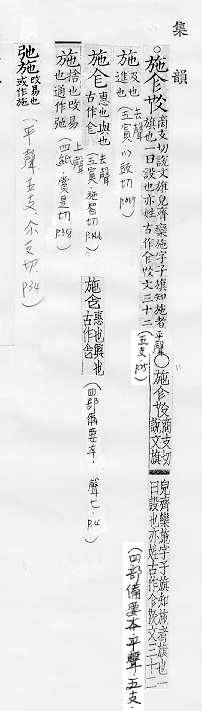 集韻
施㐌𢻱 商支切說文旗皃齊欒施字子旗知施者旗也一曰設也亦姓古作㐌𢻱文三十二 (平聲五支 p.25)
施㐌𢻱 商支切說文旗皃齊欒施字子旗知施者旗也一曰設也亦姓古作㐌𢻱文三十二 (四部備要本平聲五支
施 及也進也 (去聲五寘以豉切
施㐌 惠也與也古作㐌 (去聲五寘施智切
施㐌 惠也與也古作㐌 (四部備要本去聲七 p.4)
施 捨也改易也通作弛 (上聲四紙賞是切
弛施 改易也或作施 (平聲五支余支切 p.34)